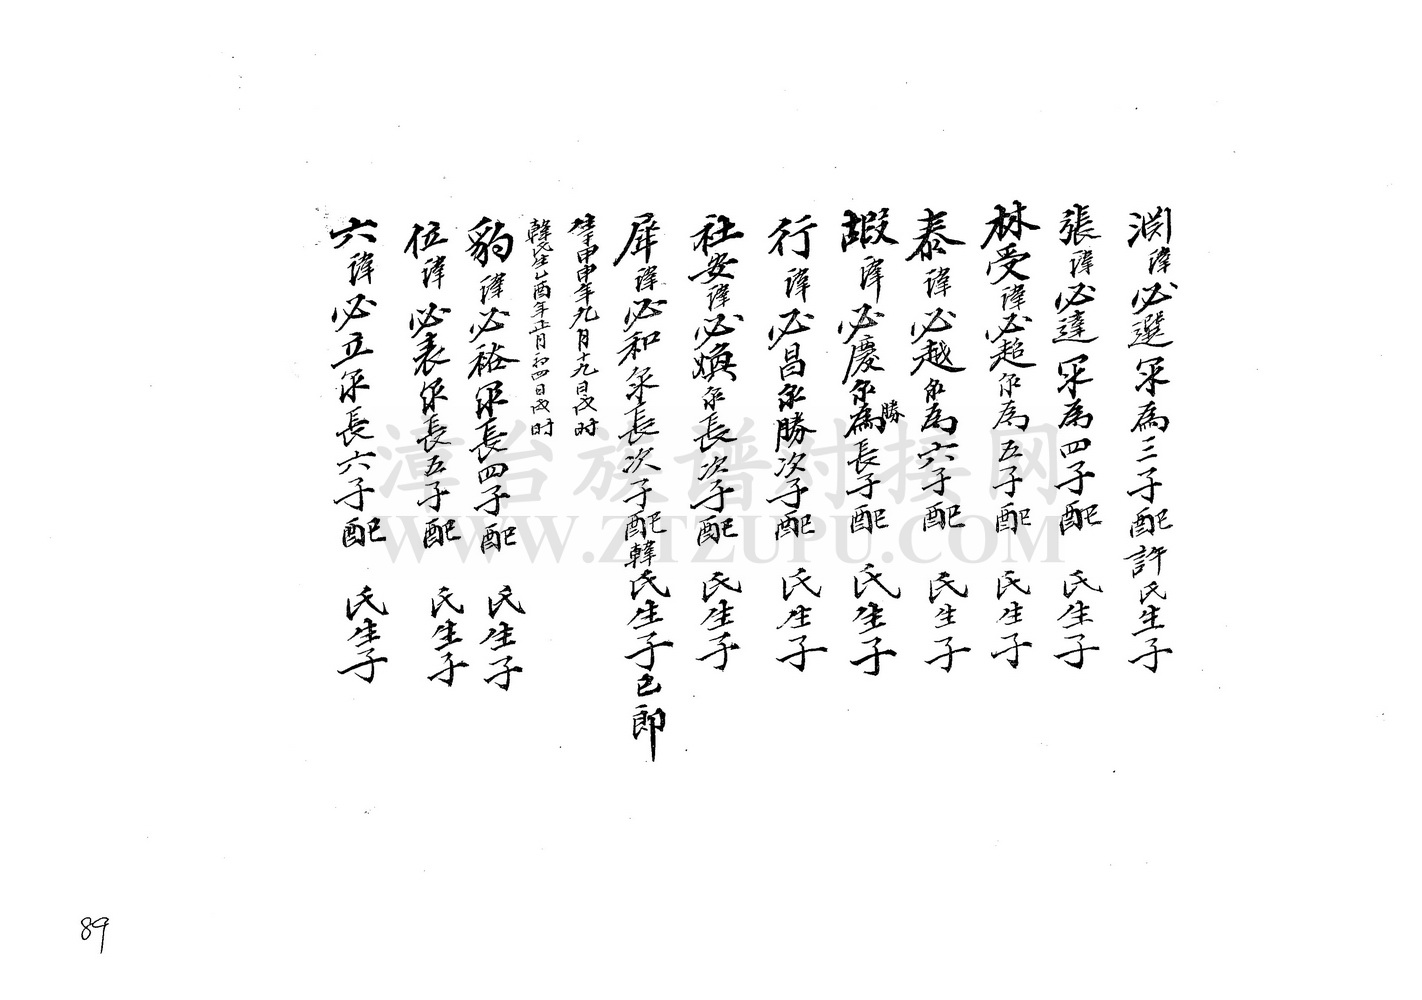 渕諱必選永為三子配許氏生子
張諱必達永為四子配 氏生子
林受諱必超永為五子配 氏生子
泰諱必越永為六子配 氏生子
嘏諱必慶永為長子配 氏生子
勝
行諱必昌永勝次子配 氏生子
社安諱必煥永長次子配 氏生子
犀諱必和永長次子配韓氏生子 郎
生甲申年九月十九日戌时
韓氏生乙酉年正月初四日戌时
豹諱必裕永長四子配 氏生子
位諱必表永長五子配 氏生子
六諱必立永長六子配 氏生子
漳台族谱对接网
WWW.ZTZUPU.COM
89